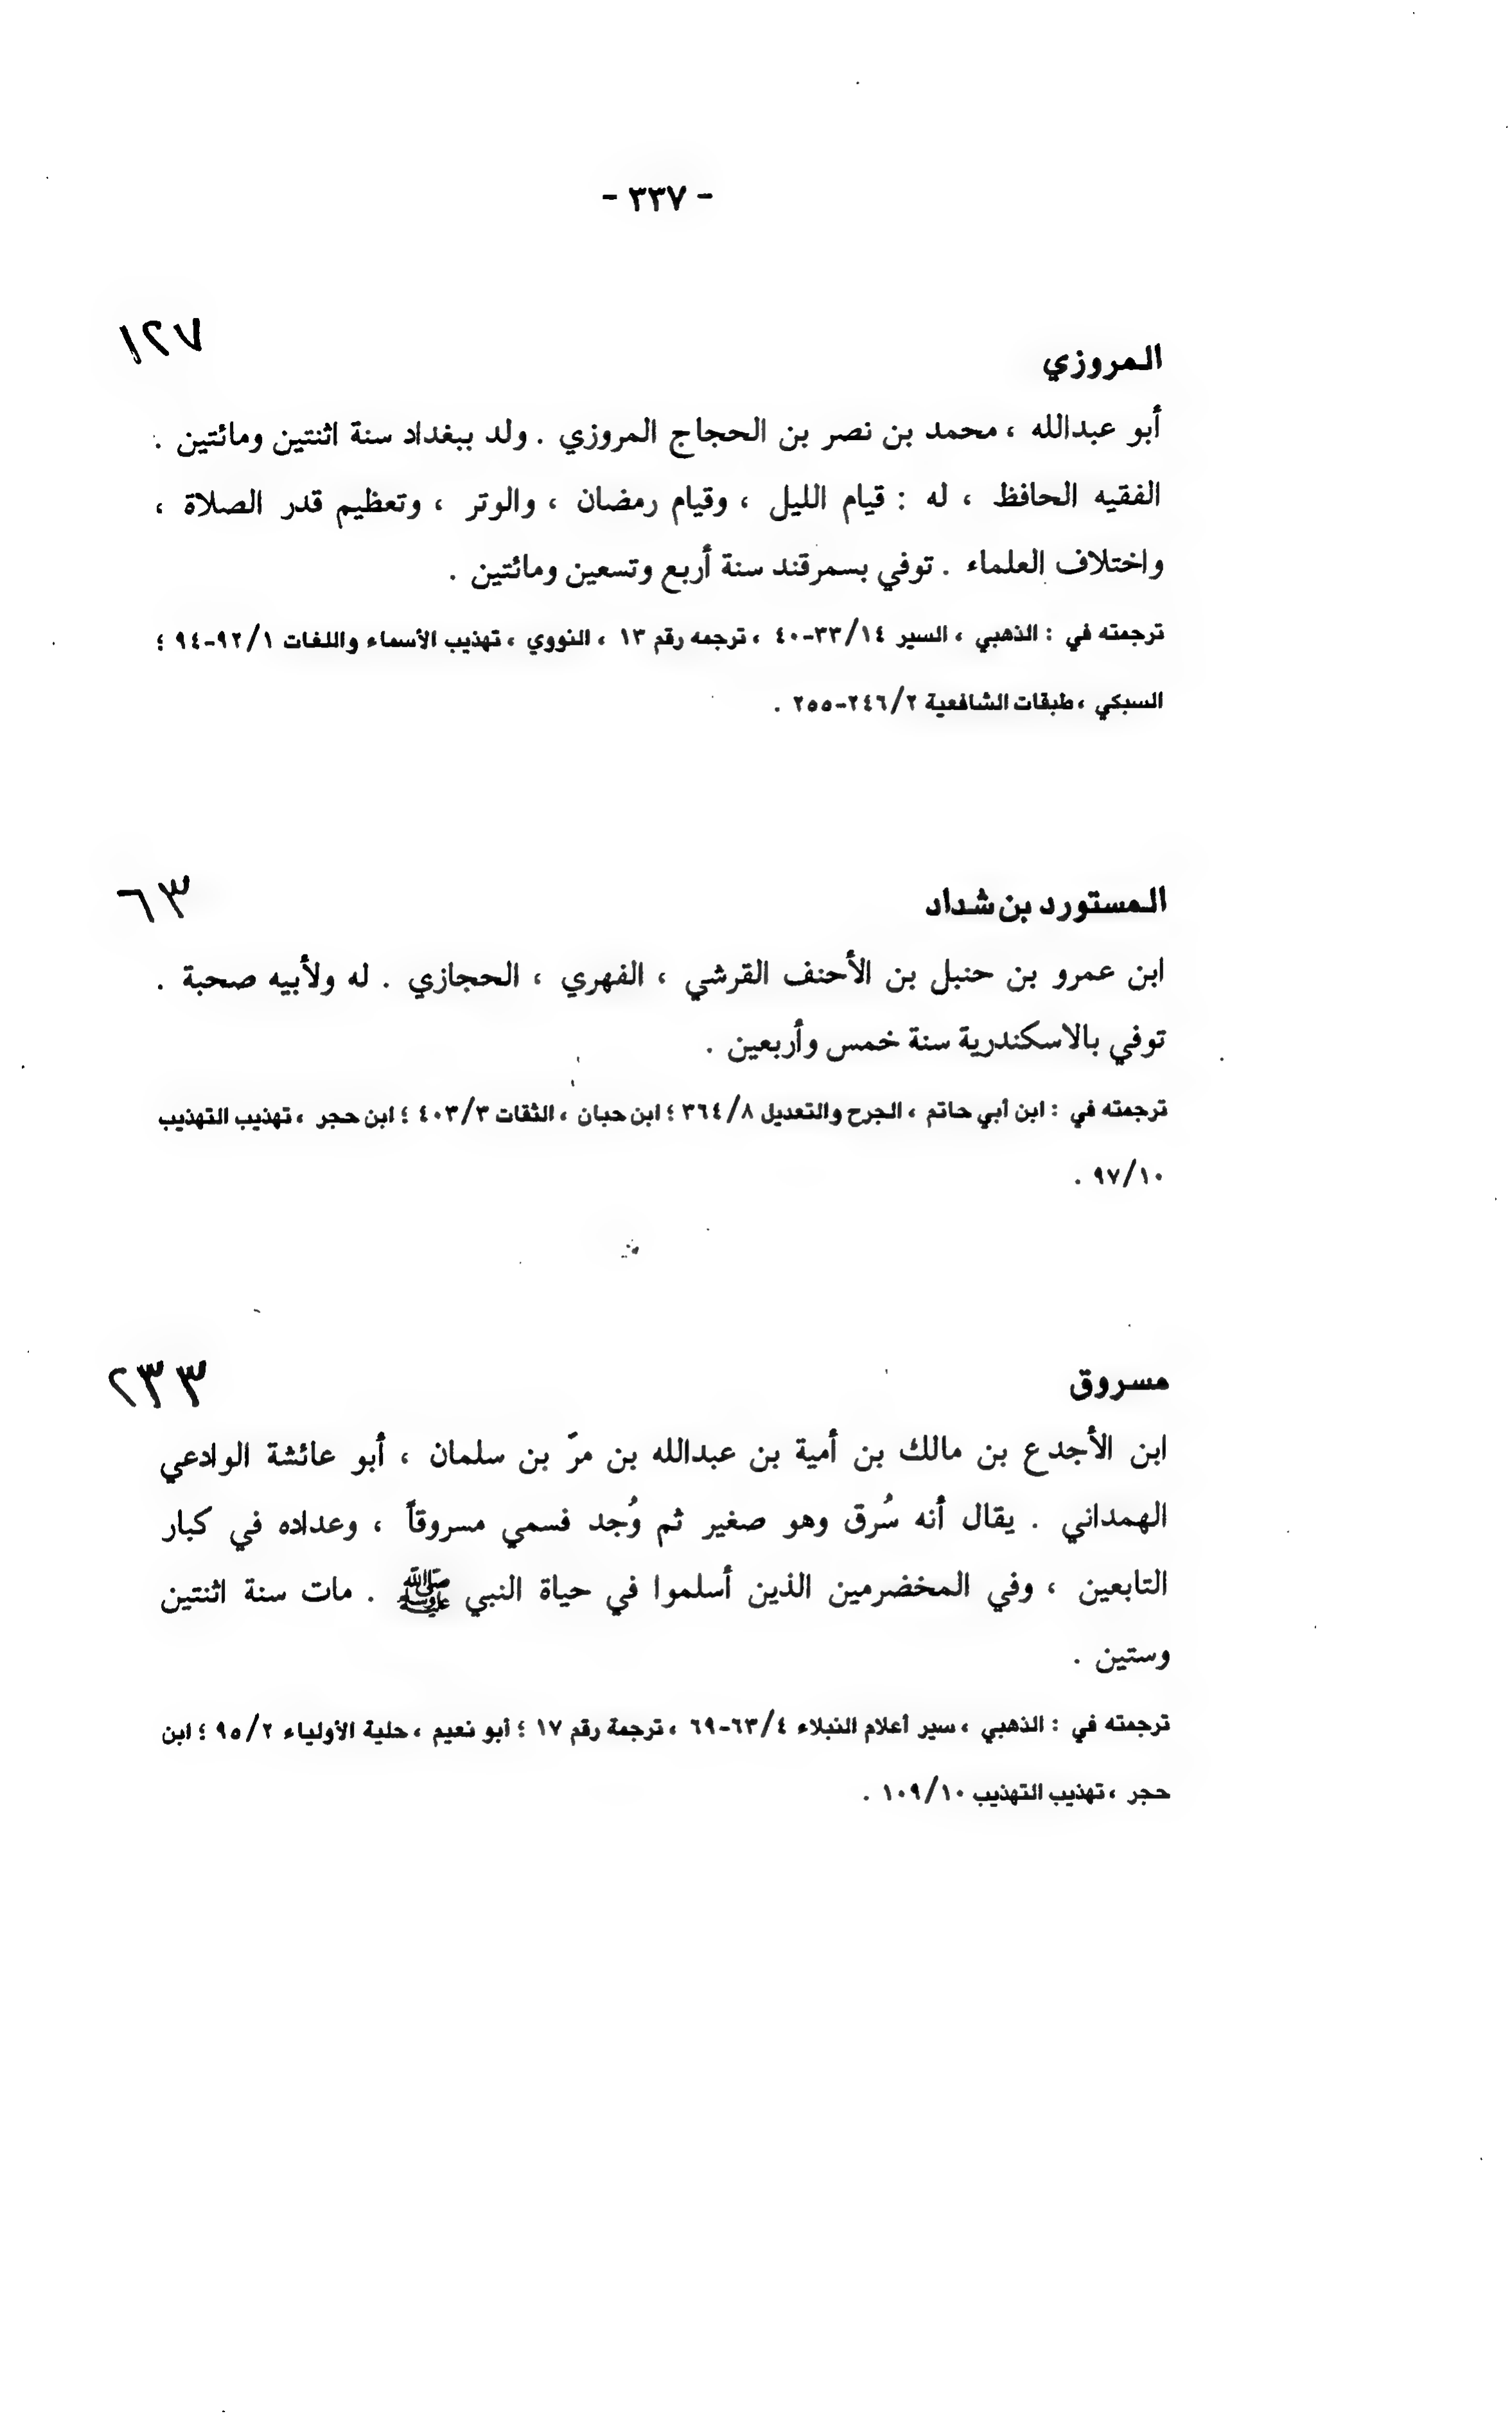 - ٣٣٧ -
المروزي ١٢٧
أبو عبدالله ، محمد بن نصر بن الحجاج المروزي . ولد ببغداد سنة اثنتين ومائتين .
الفقيه الحافظ ، له : قيام الليل ، وقيام رمضان ، والوتر ، وتعظيم قدر الصلاة ،
واختلاف العلماء . توفي بسمرقند سنة أربع وتسعين ومائتين .
ترجمته في : الذهبي ، السير ٣٣/١٤-٤٠ ، ترجمه رقم ١٣ ، النووي ، تهذيب الأسماء واللغات ٩٢/١-٩٤ ؛
السبكي ، طبقات الشافعية ٢٤٦/٢-٢٥٥ .
المستورد بن شداد ٦٣
ابن عمرو بن حنبل بن الأحنف القرشي ، الفهري ، الحجازي . له ولأبيه صحبة .
توفي بالاسكندرية سنة خمس وأربعين .
ترجمته في : ابن أبي حاتم ، الجرح والتعديل ٣٦٤/٨ ؛ ابن حبان ، الثقات ٤٠٣/٣ ؛ ابن حجر ، تهذيب التهذيب
٩٧/١٠ .
مسروق ٢٣٣
ابن الأجدع بن مالك بن أمية بن عبدالله بن مرّ بن سلمان ، أبو عائشة الوادعي
الهمداني . يقال أنه سُرق وهو صغير ثم وُجد فسمي مسروقاً ، وعداده في كبار
التابعين ، وفي المخضرمين الذين أسلموا في حياة النبي ﷺ . مات سنة اثنتين
وستين .
ترجمته في : الذهبي ، سير أعلام النبلاء ٦٣/٤-٦٩ ، ترجمة رقم ١٧ ؛ أبو نعيم ، حلية الأولياء ٩٥/٢ ؛ ابن
حجر ، تهذيب التهذيب ١٠٩/١٠ .